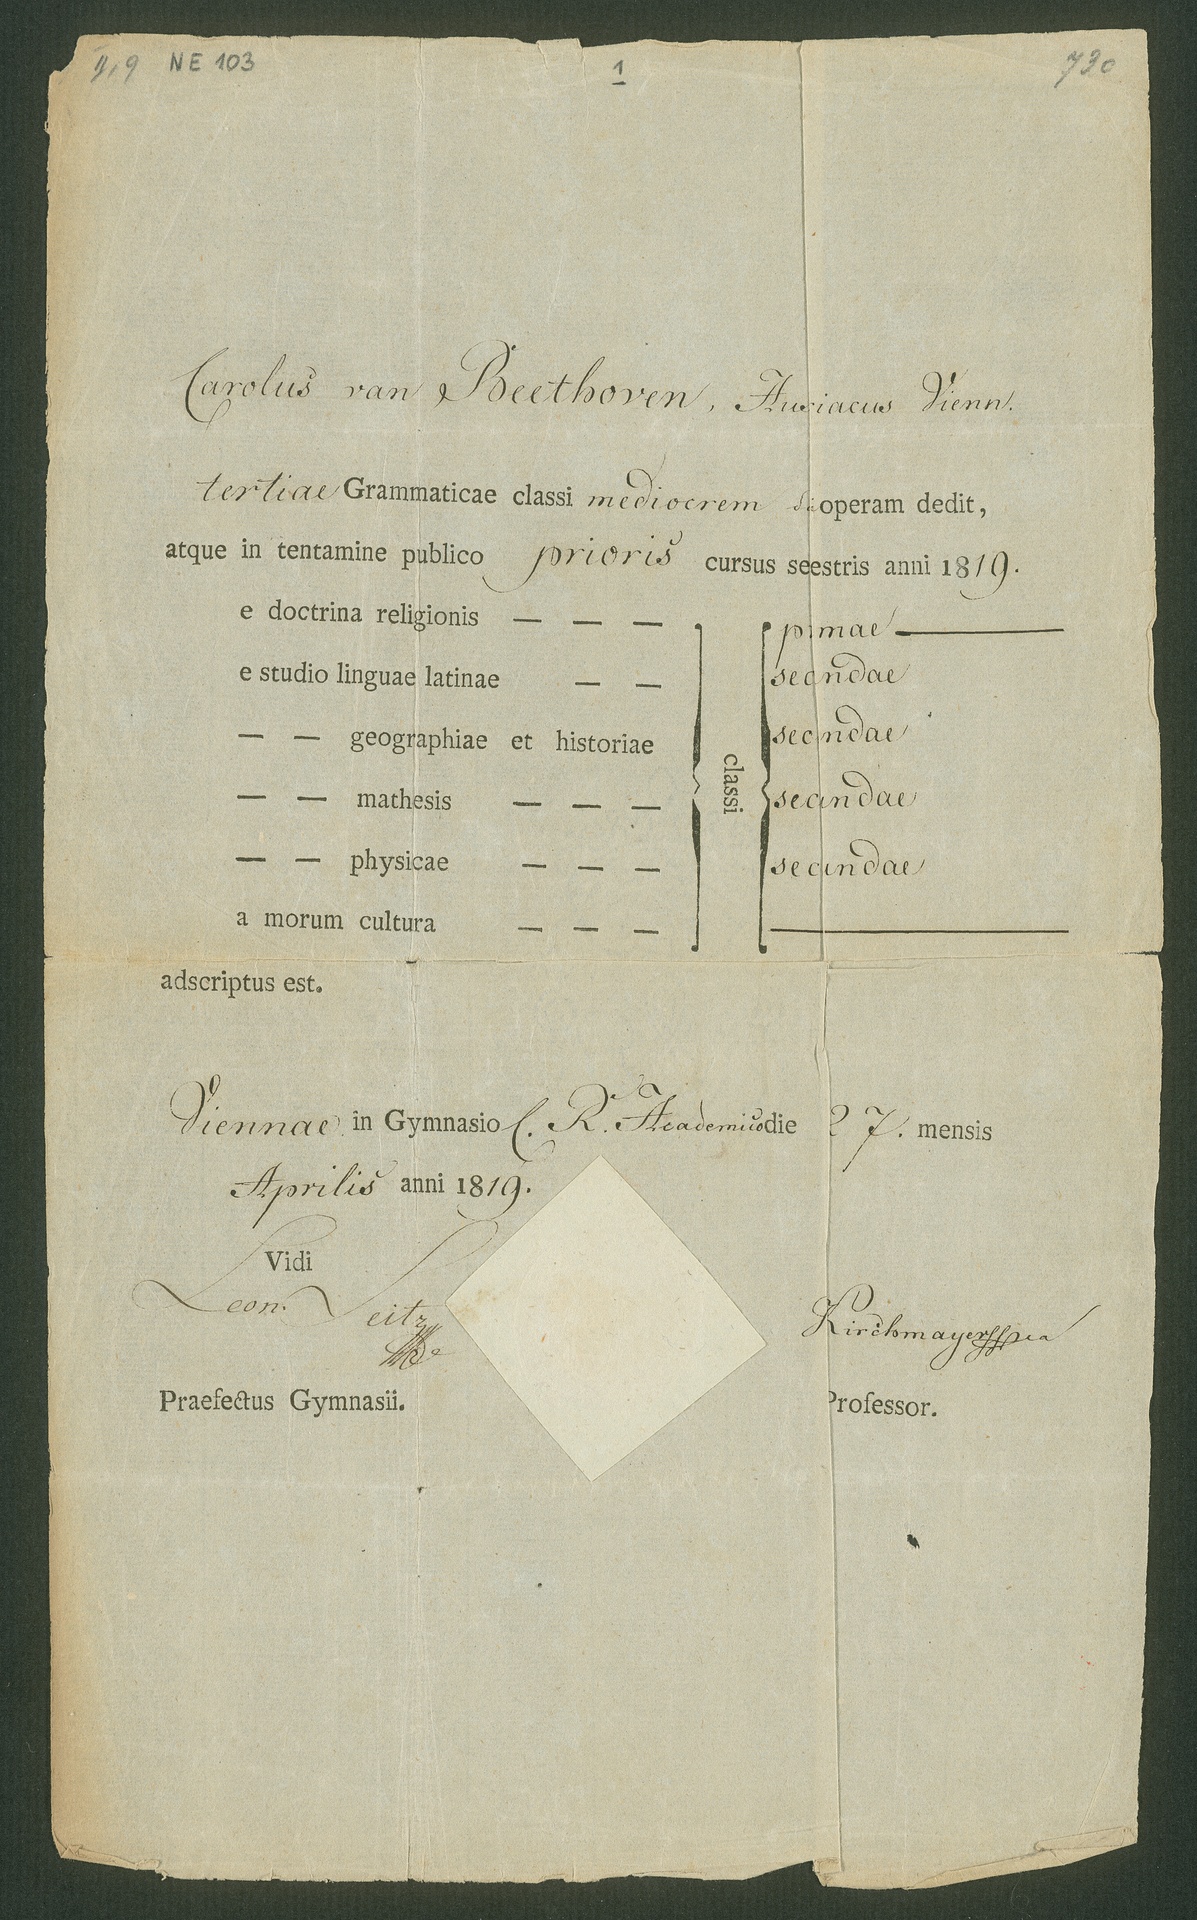 NE 103
1
730
Carolus van Beethoven, Austriacus Vienn.
tertiae Grammaticae classi mediocrem operam dedit,
atque in tentamine publico prioris cursus seestris anni 1819.
e doctrina religionis — — — primae —
e studio linguae latinae — — secundae
— — geographiae et historiae secundae
— — mathesis — — — secundae
classi
— — physicae — — — secundae
a morum cultura — — — —
adscriptus est.
Viennae in Gymnasio C. R. Academico die 27. mensis
Aprilis anni 1819.
Vidi
Leon. Seitz
Kirchmayer
Praefectus Gymnasii.
Professor.